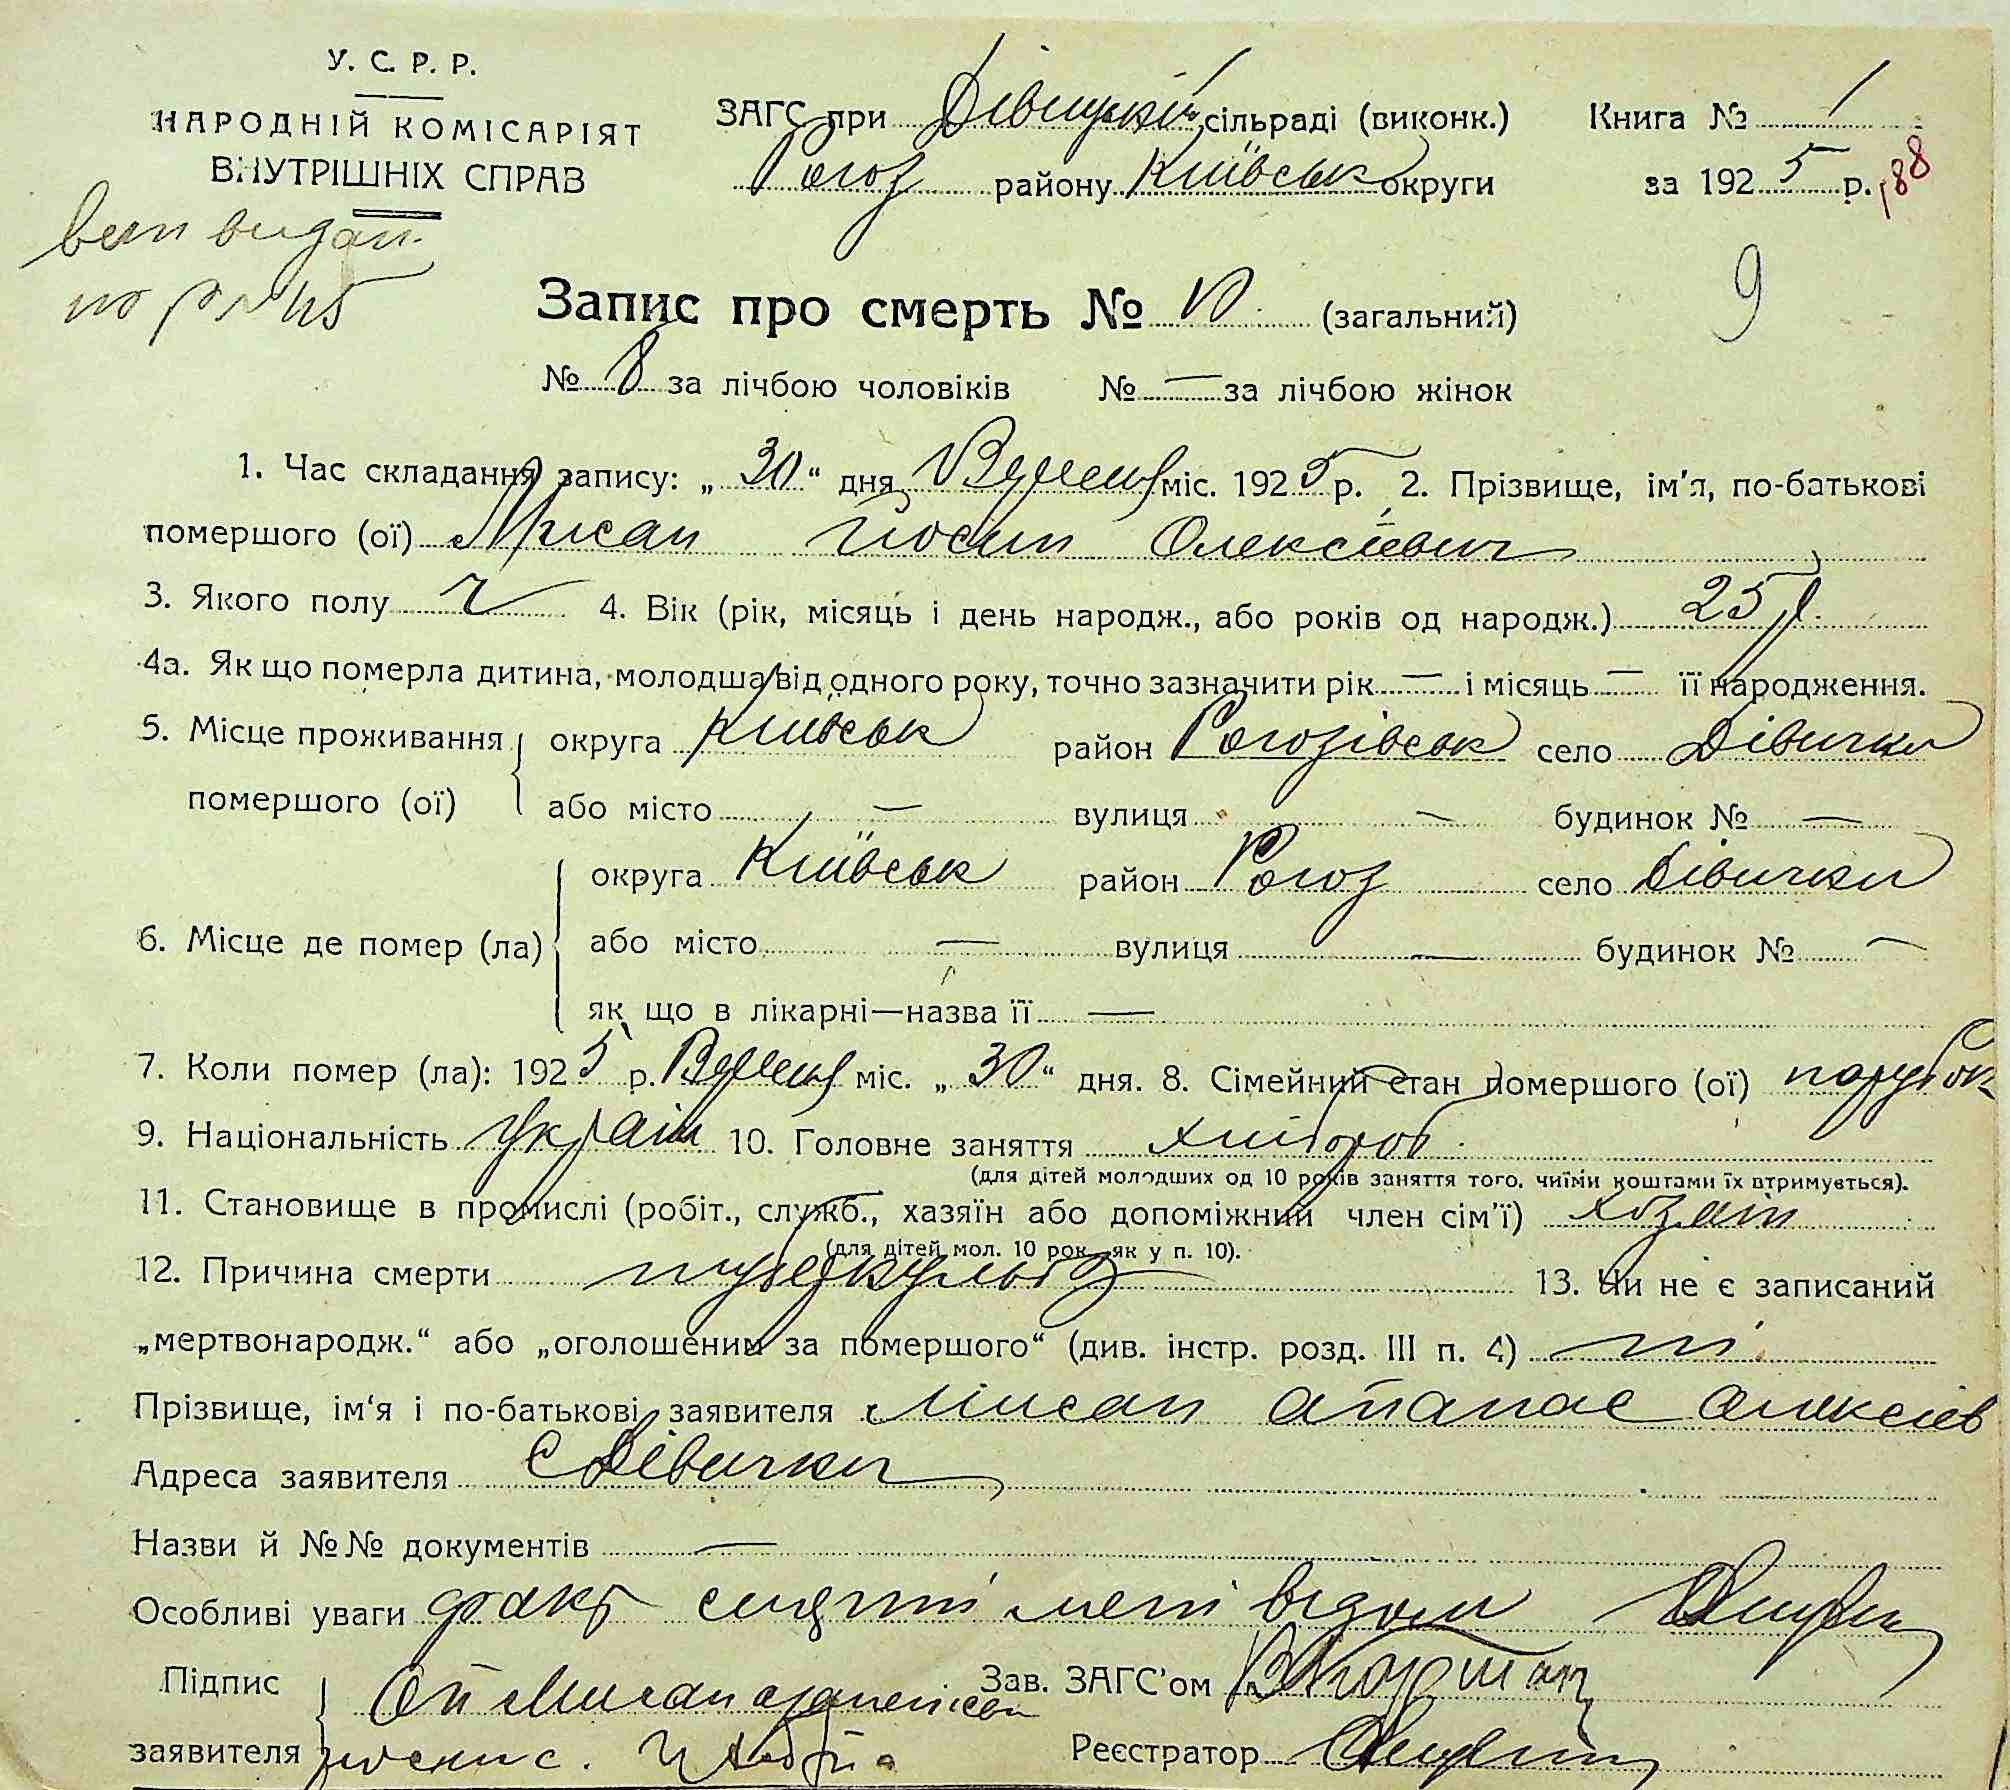 У. С. Р. Р.
НАРОДНІЙ КОМІСАРІЯТ
ВНУТРІШНІХ СПРАВ
ЗАГС при Дівицькій сільраді (виконк.)
Рогоз району Київськ округи
Книга № 1
за 1925 р. 188
9
Запис про смерть № 10 (загальний)
№ 8 за лічбою чоловіків № — за лічбою жінок
1. Час складання запису: „30“ дня Вересня міс. 1925 р. 2. Прізвище, ім'я, по-батькові
помершого (ої) Мисан Йосип Олексієвич
3. Якого полу ч 4. Вік (рік, місяць і день народж., або років од народж.) 25 р.
4а. Як що померла дитина, молодша від одного року, точно зазначити рік — і місяць — її народження.
5. Місце проживання помершого (ої) округа Київськ район Рогозівськ село Дівички
або місто — вулиця — будинок № —
6. Місце де помер (ла) округа Київськ район Рогоз село Дівички
або місто — вулиця — будинок № —
як що в лікарні—назва її —
7. Коли помер (ла): 1925 р. Вересня міс. „30“ дня. 8. Сімейний стан помершого (ої) парубок
9. Національність Україн 10. Головне заняття хлібороб
(для дітей молодших од 10 років заняття того, чиїми коштами їх втримується).
11. Становище в промислі (робіт., служб., хазяїн або допоміжний член сім'ї) хозяїн
(для дітей мол. 10 рок. як у п. 10).
12. Причина смерти туберкульоз 13. Чи не є записаний
„мертвонародж.“ або „оголошеним за помершого“ (див. інстр. розд. III п. 4) ні
Прізвище, ім'я і по-батькові заявителя Мисан Апанас Олексіев
Адреса заявителя с Дівички
Назви й №№ документів —
Особливі уваги факт смерти мені відом
Підпис заявителя Мисан
Зав. ЗАГС'ом
Реєстратор